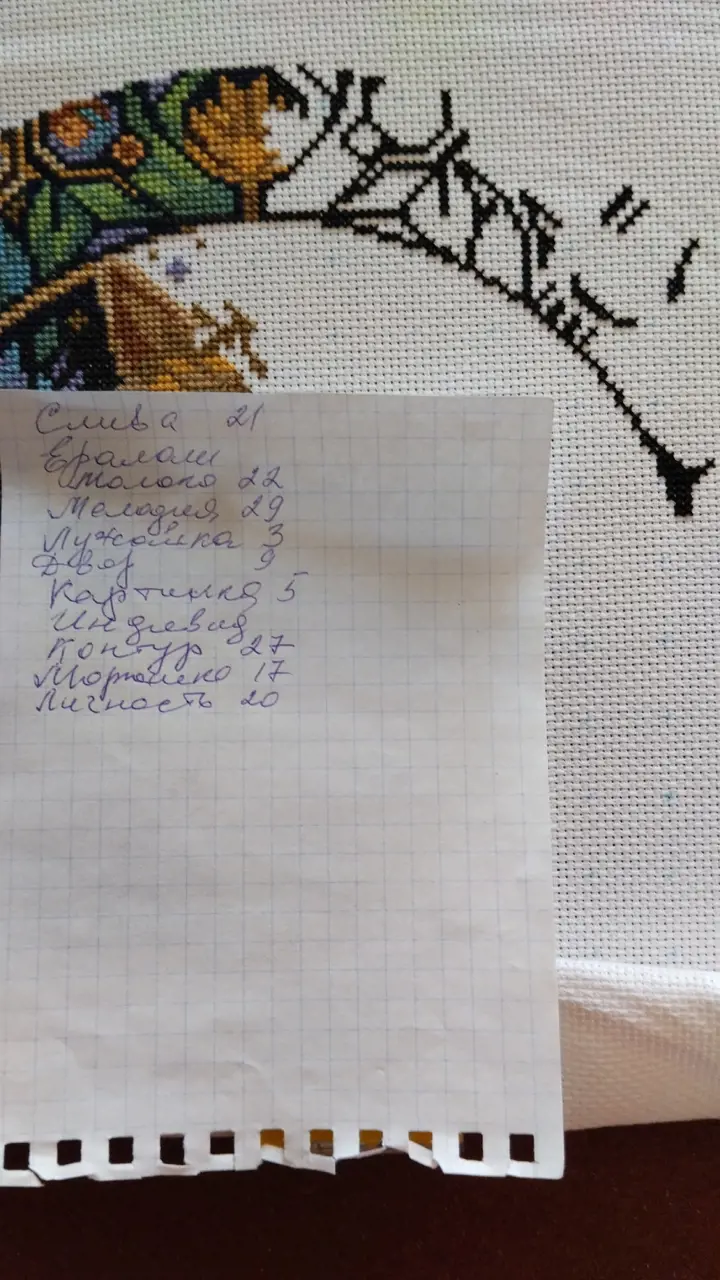 Слива 21
Ералаш
Молоко 22
Мелодия 29
Лужайка 3
Двор 9
Картинка 5
Индивид
Контур 27
Морошка 17
Личность 20